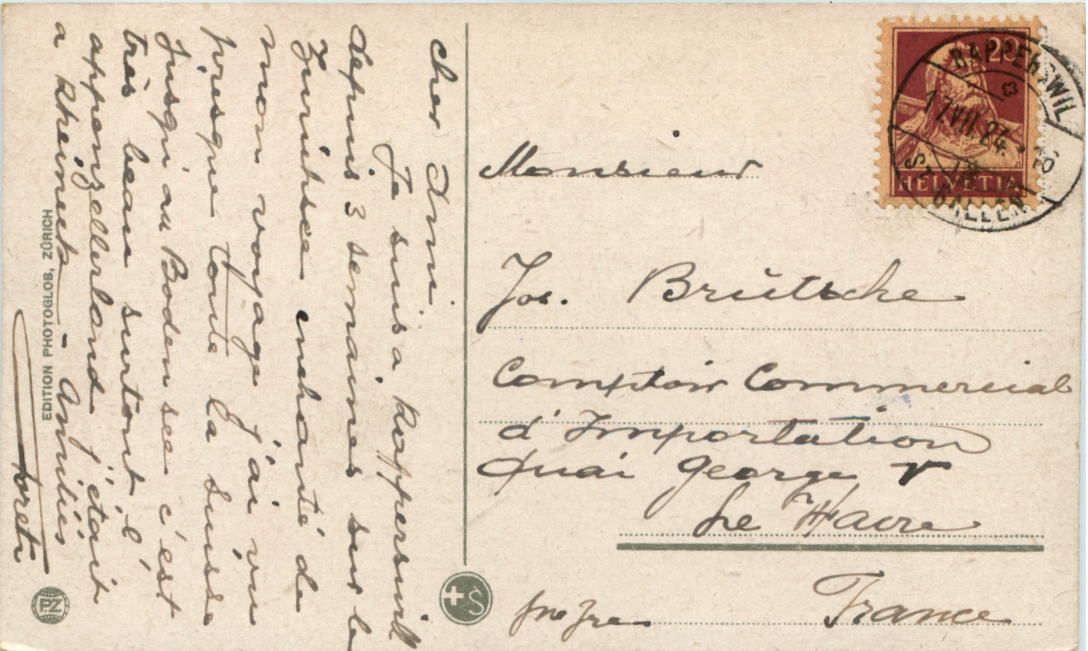 cher Ami.
Je suis a Rapperswill
depuis 3 semaines sur le
Zurichsee enchanté de
mon voyage j'ai vu
presque toute la Suisse
Jusqu'au Bodensee c'est
très beau surtout l'
appenzellerland j'étais
a Rheineck - Amitiés
EDITION PHOTOGLOB, ZÜRICH
PZ
S
20
HELVETIA
RAPPERSWIL
17.VII.24.-18
ST. GALLEN
Monsieur
Jos. Brütsche
Comptoir Commercial
d'Importation
Quai George V
Le Havre
France